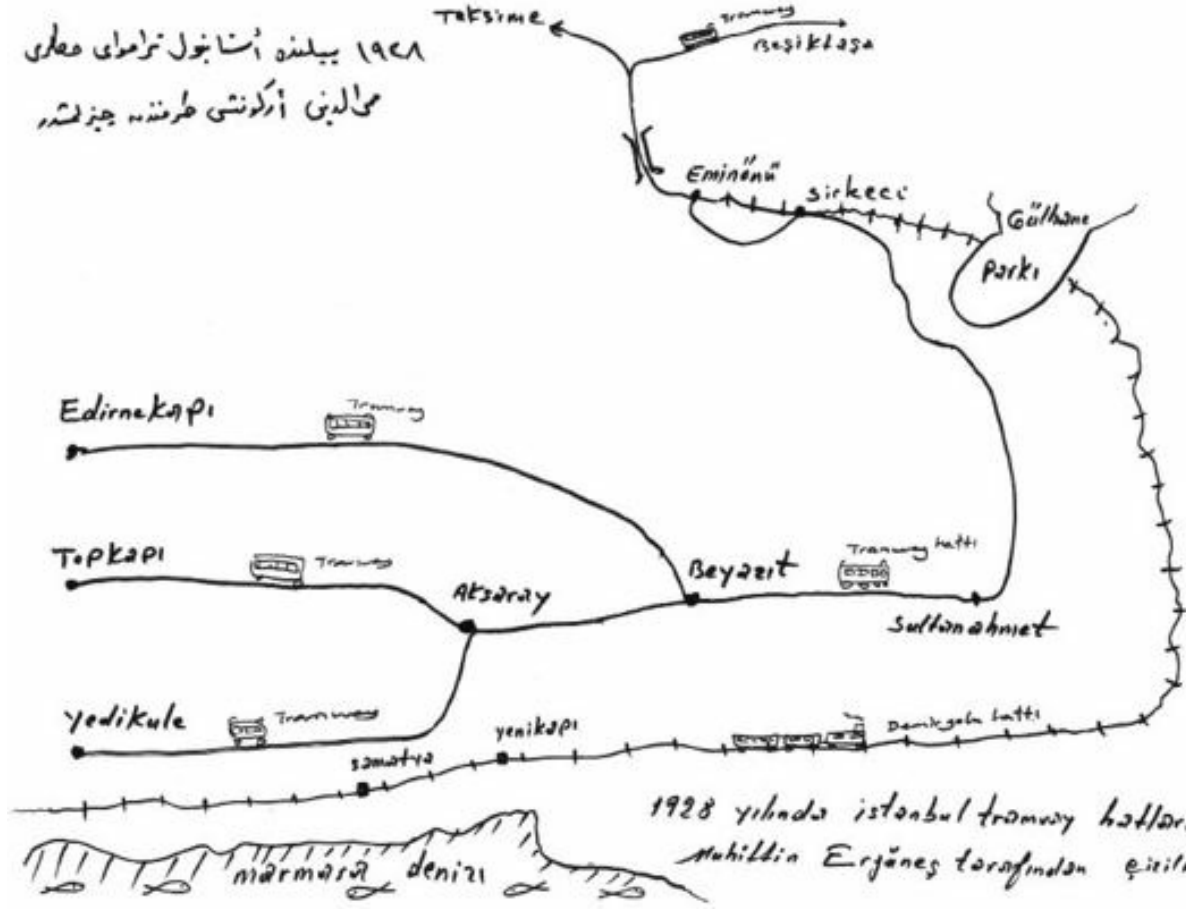 Taksime
Tramway
Beşiktaşa
١٩٢٨ ييلنده أستانبول تراموای خطلری
محی الدين أركونش طرفندن چيزلمشدر
Eminönü
Sirkeci
Gülhane
Parkı
Edirnekapı
Tramway
Topkapı
Tramway
Aksaray
Beyazıt
Tramway hattı
Sultanahmet
Yedikule
Tramway
Samatya
Yenikapı
Demiryolu hattı
marmara denizi
1928 yılında istanbul tramvay hatları
Muhittin Ergüneş tarafından